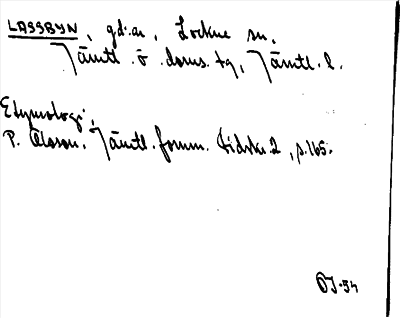 LASSBYN, gd:ar, Lockne sn,
Jämtl. ö. doms. tg, Jämtl. l.
Etymologi:
P. Olsson. Jämtl. fornm. tidskr. 2, s. 165.
OJ-54